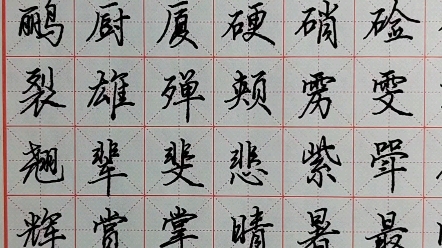 鹂厨厦硬硝硷
裂雄殚颊雳雯
翘辈斐悲紫斝
辉赏掌晴暑最